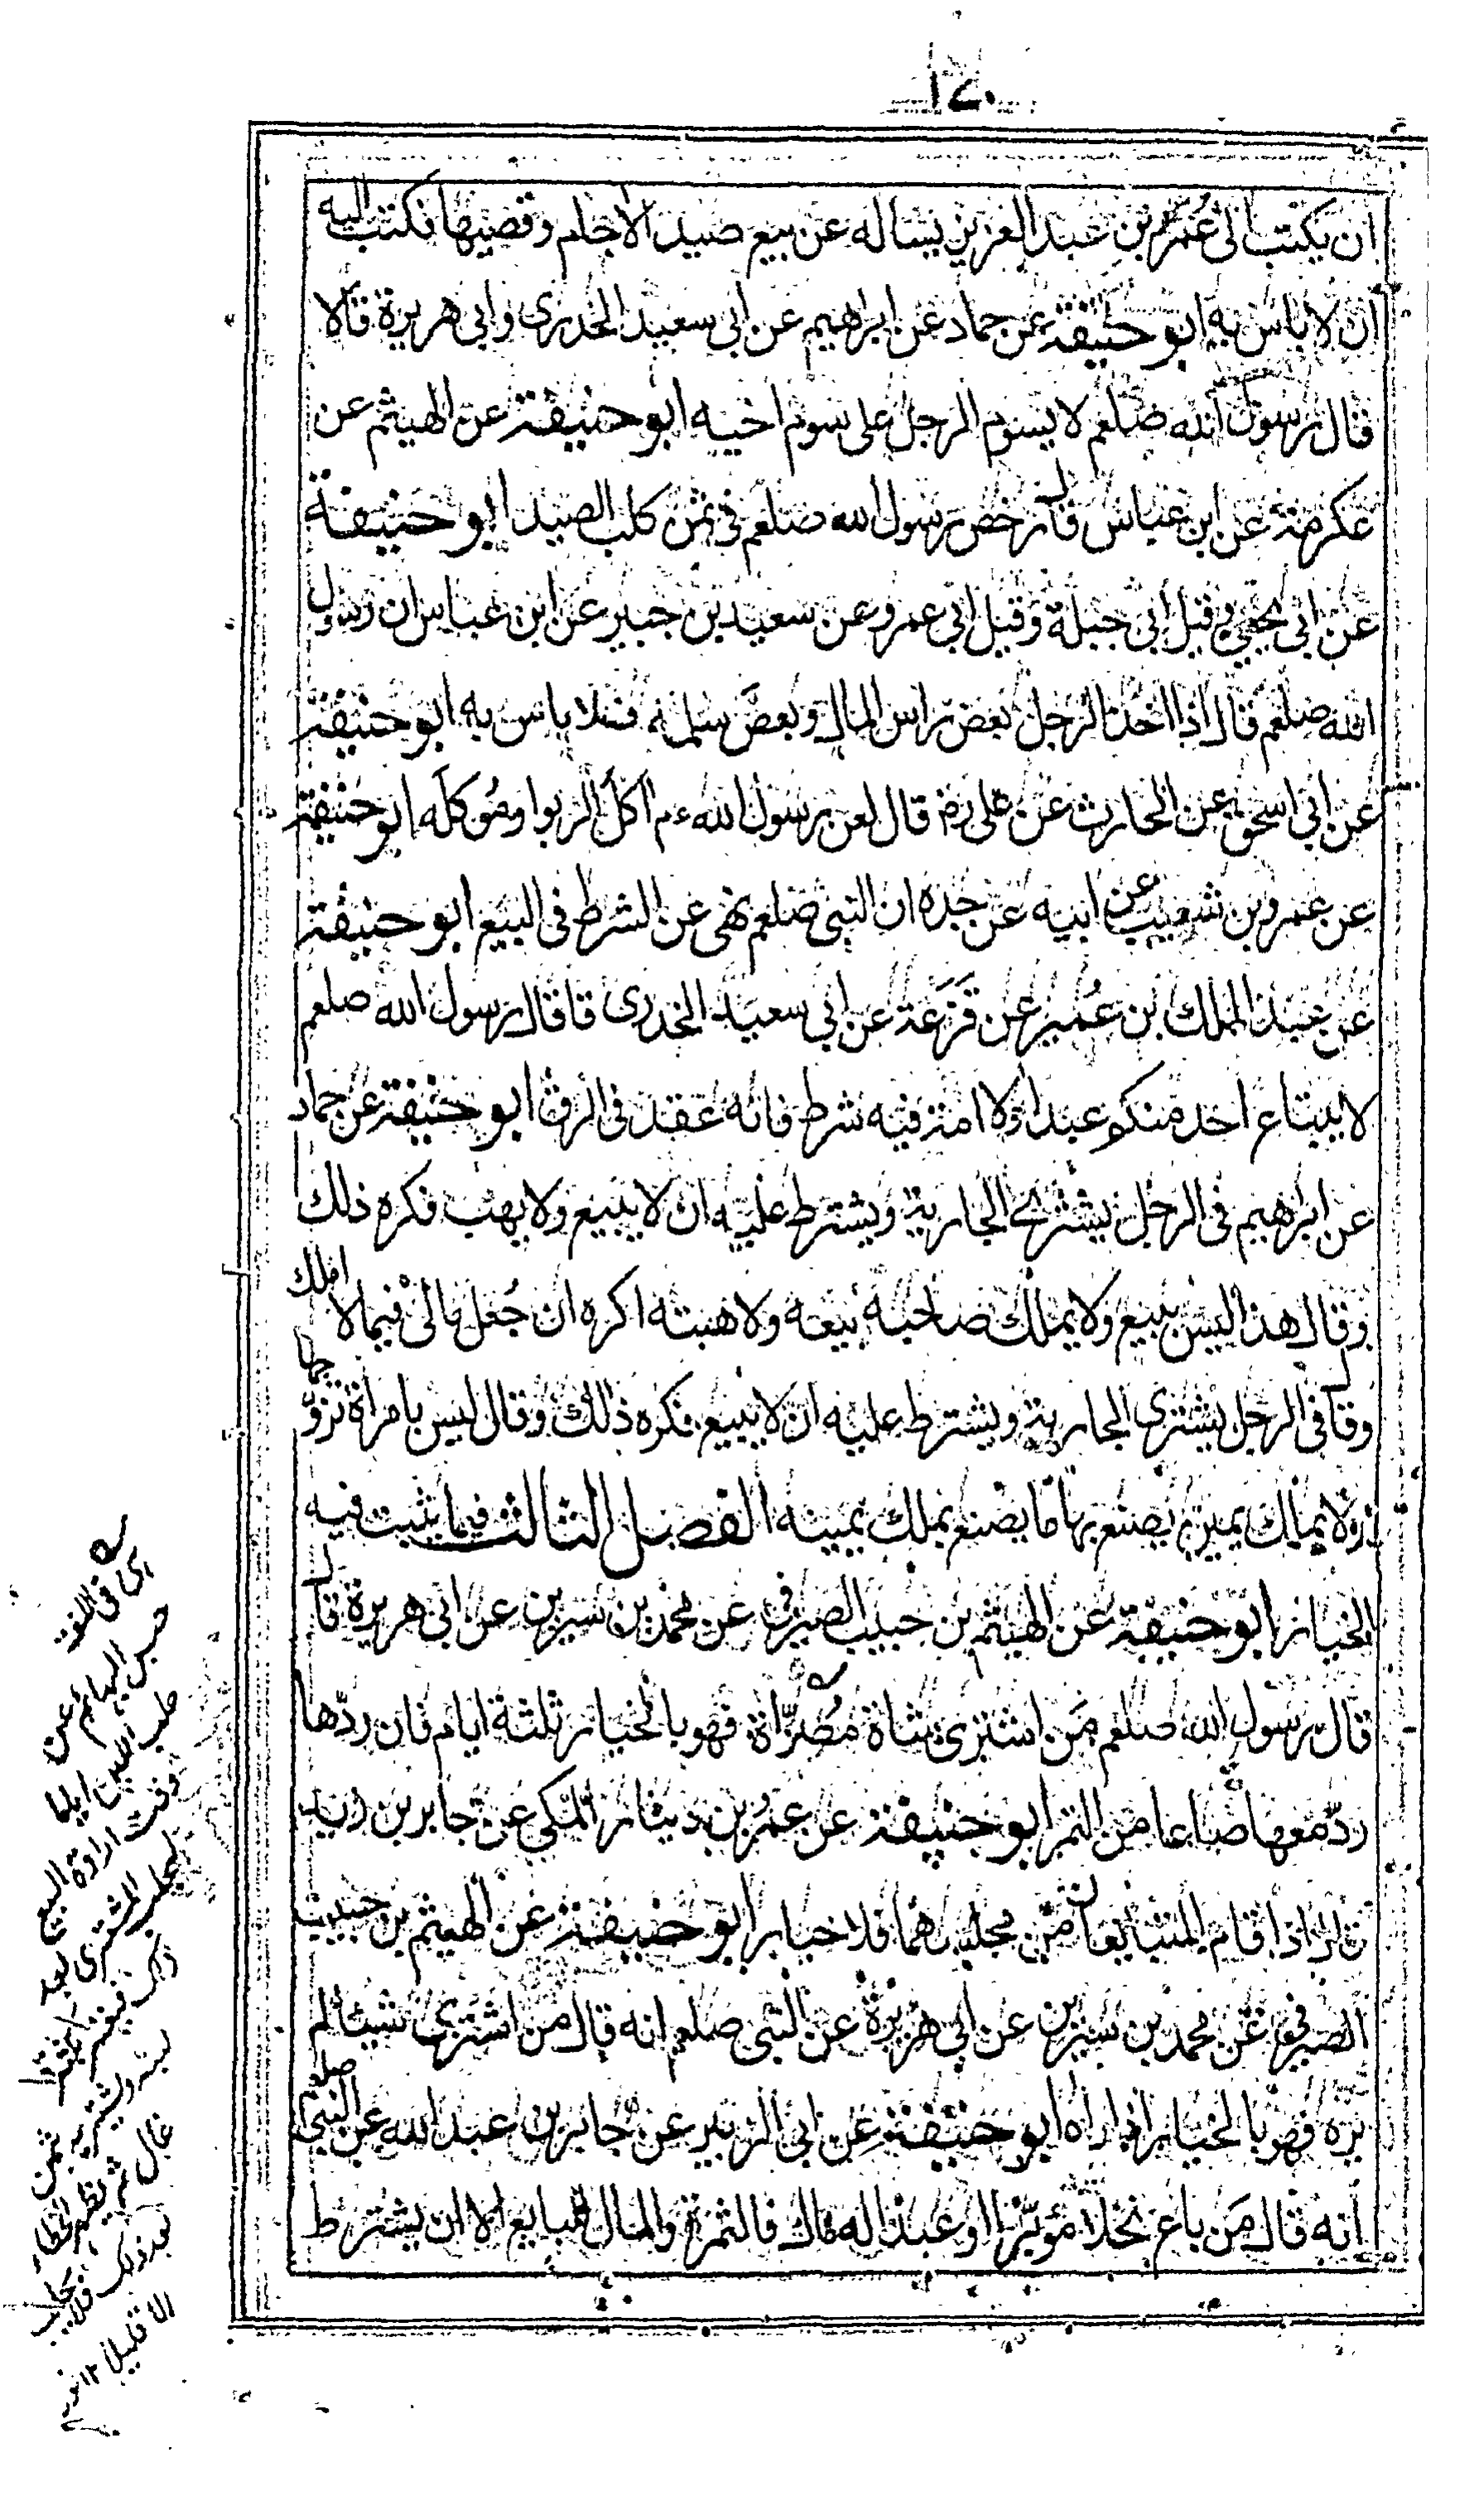 ١٤٠
ان يكتب الى عمر بن عبد العزيز يساله عن بيع صيد الاجام وقصبها فكتب اليه
ان لا باس به ابو حنيفة عن حماد عن ابراهيم عن ابى سعيد الخدرى وابى هريرة قالا
قال رسول الله صلعم لا يسوم الرجل على سوم اخيه ابو حنيفة عن الهيثم عن
عكرمة عن ابن عباس قال رخص رسول الله صلعم فى ثمن كلب الصيد ابو حنيفة
عن ابى يحيى وقيل ابى جبلة وقيل ابى عمر وعن سعيد بن جبير عن ابن عباس ان رسول
الله صلعم قال اذا اخذ الرجل بعض راس المال وبعض سلمه فلا باس به ابو حنيفة
عن ابى اسحق عن الحارث عن على رض قال لعن رسول الله ءم اكل الربوا وموكله ابو حنيفة
عن عمرو بن شعيب عن ابيه عن جده ان النبى صلعم نهى عن الشرط فى البيع ابو حنيفة
عن عبد الملك بن عمير عن قزعة عن ابى سعيد الخدرى قا قال رسول الله صلعم
لا يبتاع احد منكم عبدا ولا امة فيه شرط فانه عقد فى الرق ابو حنيفة عن حماد
عن ابرهيم فى الرجل يشترى الجارية ويشترط عليه ان لا يبيع ولا يهب فكره ذلك
وقال هذا ليس ببيع ولا يملك صاحبه بيعه ولا هبته اكره ان جعل مالى فيما لا املك
وقال فى الرجل يشترى الجارية ويشترط عليه ان لا يبيع فكره ذلك وقال ليس بامراة تزوجها
ولا يملك يمين يصنع بها ما يصنع بملك يمينه الفصل الثالث فيما يثبت فيه
الخيار ابو حنيفة عن الهيثم بن حبيب الصيرفى عن محمد بن سيرين عن ابى هريرة قال
قال رسول الله صلعم مَن اشترى شاة مُصَرّاة فهو بالخيار ثلثة ايام فان ردّها
ردّ معها صاعا من التمر ابو حنيفة عن عمر بن دينار المكى عن جابر بن زيد
قال اذا قام المتبايعان من مجلسهما فلا خيار ابو حنيفة عن الهيثم بن حبيب
الصيرفى عن محمد بن سيرين عن ابى هريرة عن النبى صلعم انه قال من اشترى شيئا لم
يره فهو بالخيار اذا راه ابو حنيفة عن ابى الزبير عن جابر بن عبد الله عن النبى صلعم
انه قال مَن باع نخلا مؤبّرا او عبدا له مال فالثمرة والمال للبايع الا ان يشترط
حبس البهائم عن
حلب اللبن اياما
وقت ارادة البيع
المشترى بعد